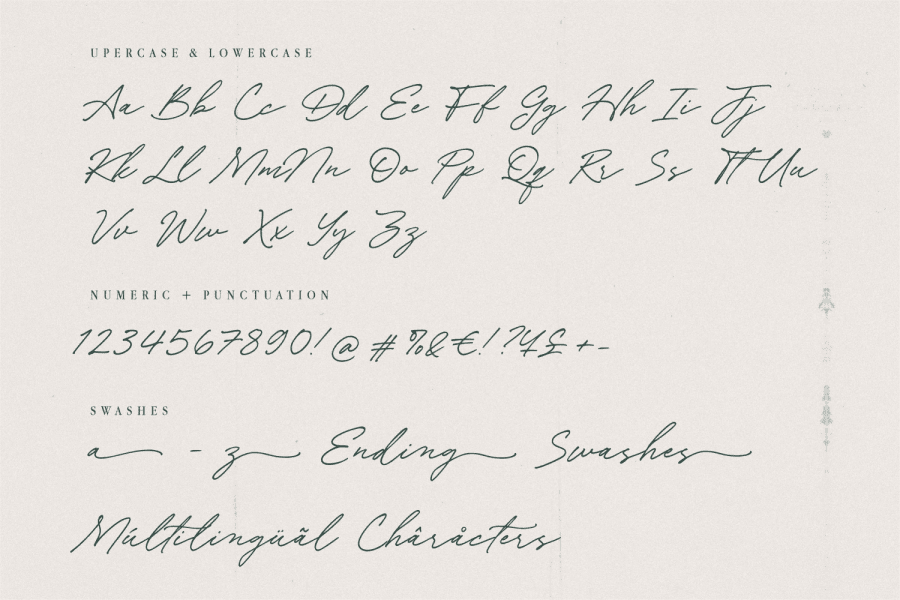 UPERCASE & LOWERCASE
Aa Bb Cc Dd Ee Ff Gg Hh Ii Jj
Kk Ll Mm Nn Oo Pp Qq Rr Ss Tt Uu
Vv Ww Xx Yy Zz
NUMERIC + PUNCTUATION
1234567890! @ # %& €! ?¥£ + -
SWASHES
a - z Ending Swashes
Múltilingüãl Châråcters